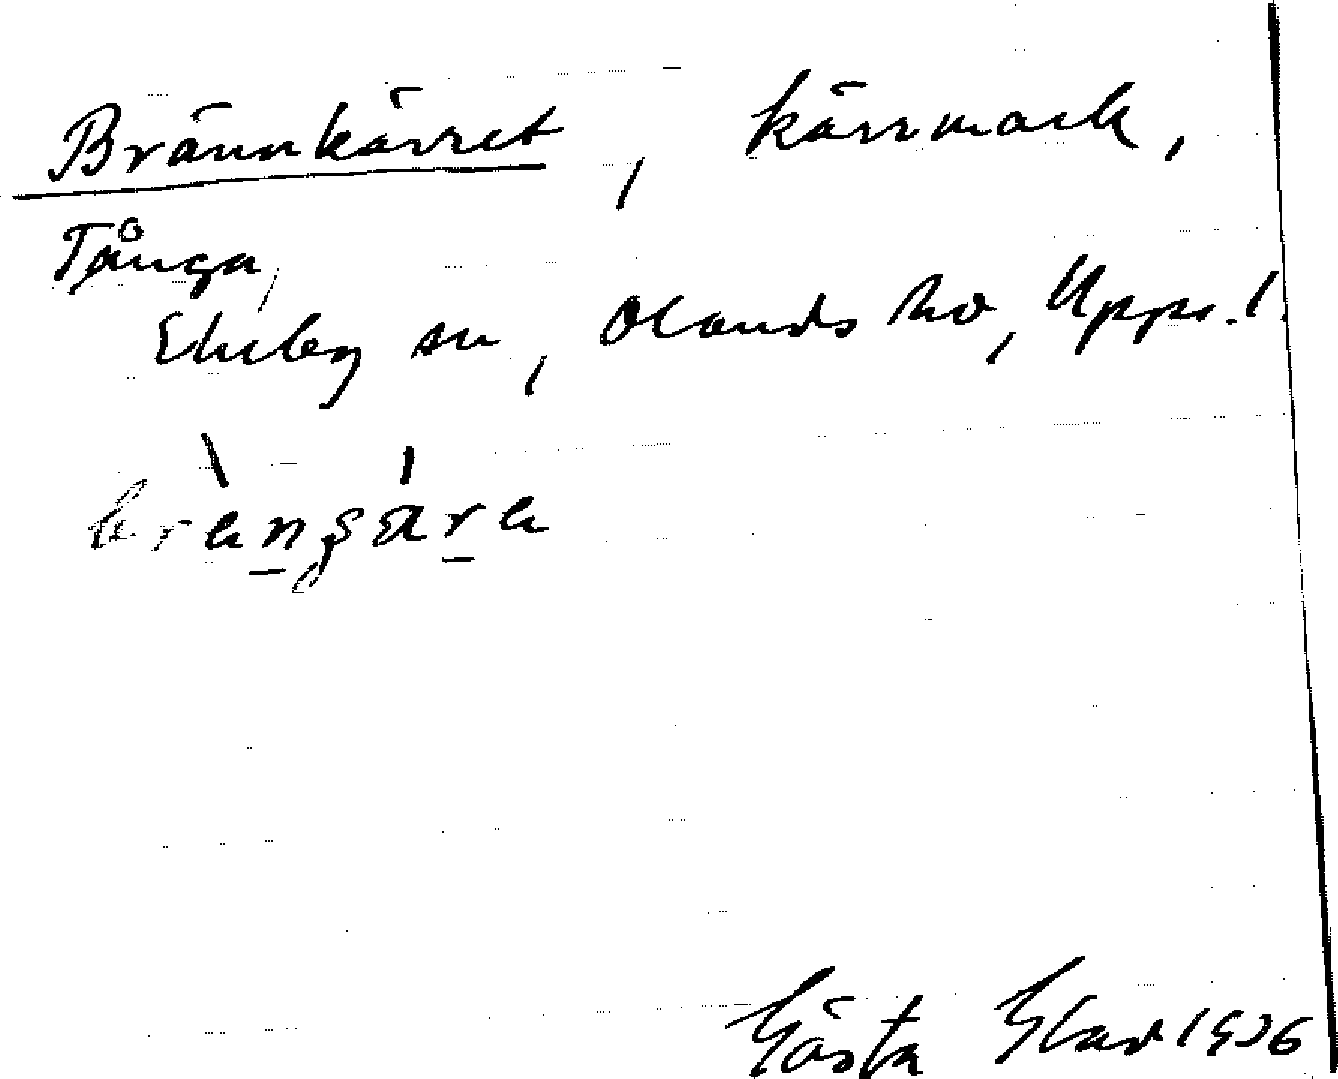 Brännkärret, kärrmark,
Tånga,
Ekeby sn, Olands hd, Upps. l.
Gösta Glad 1936